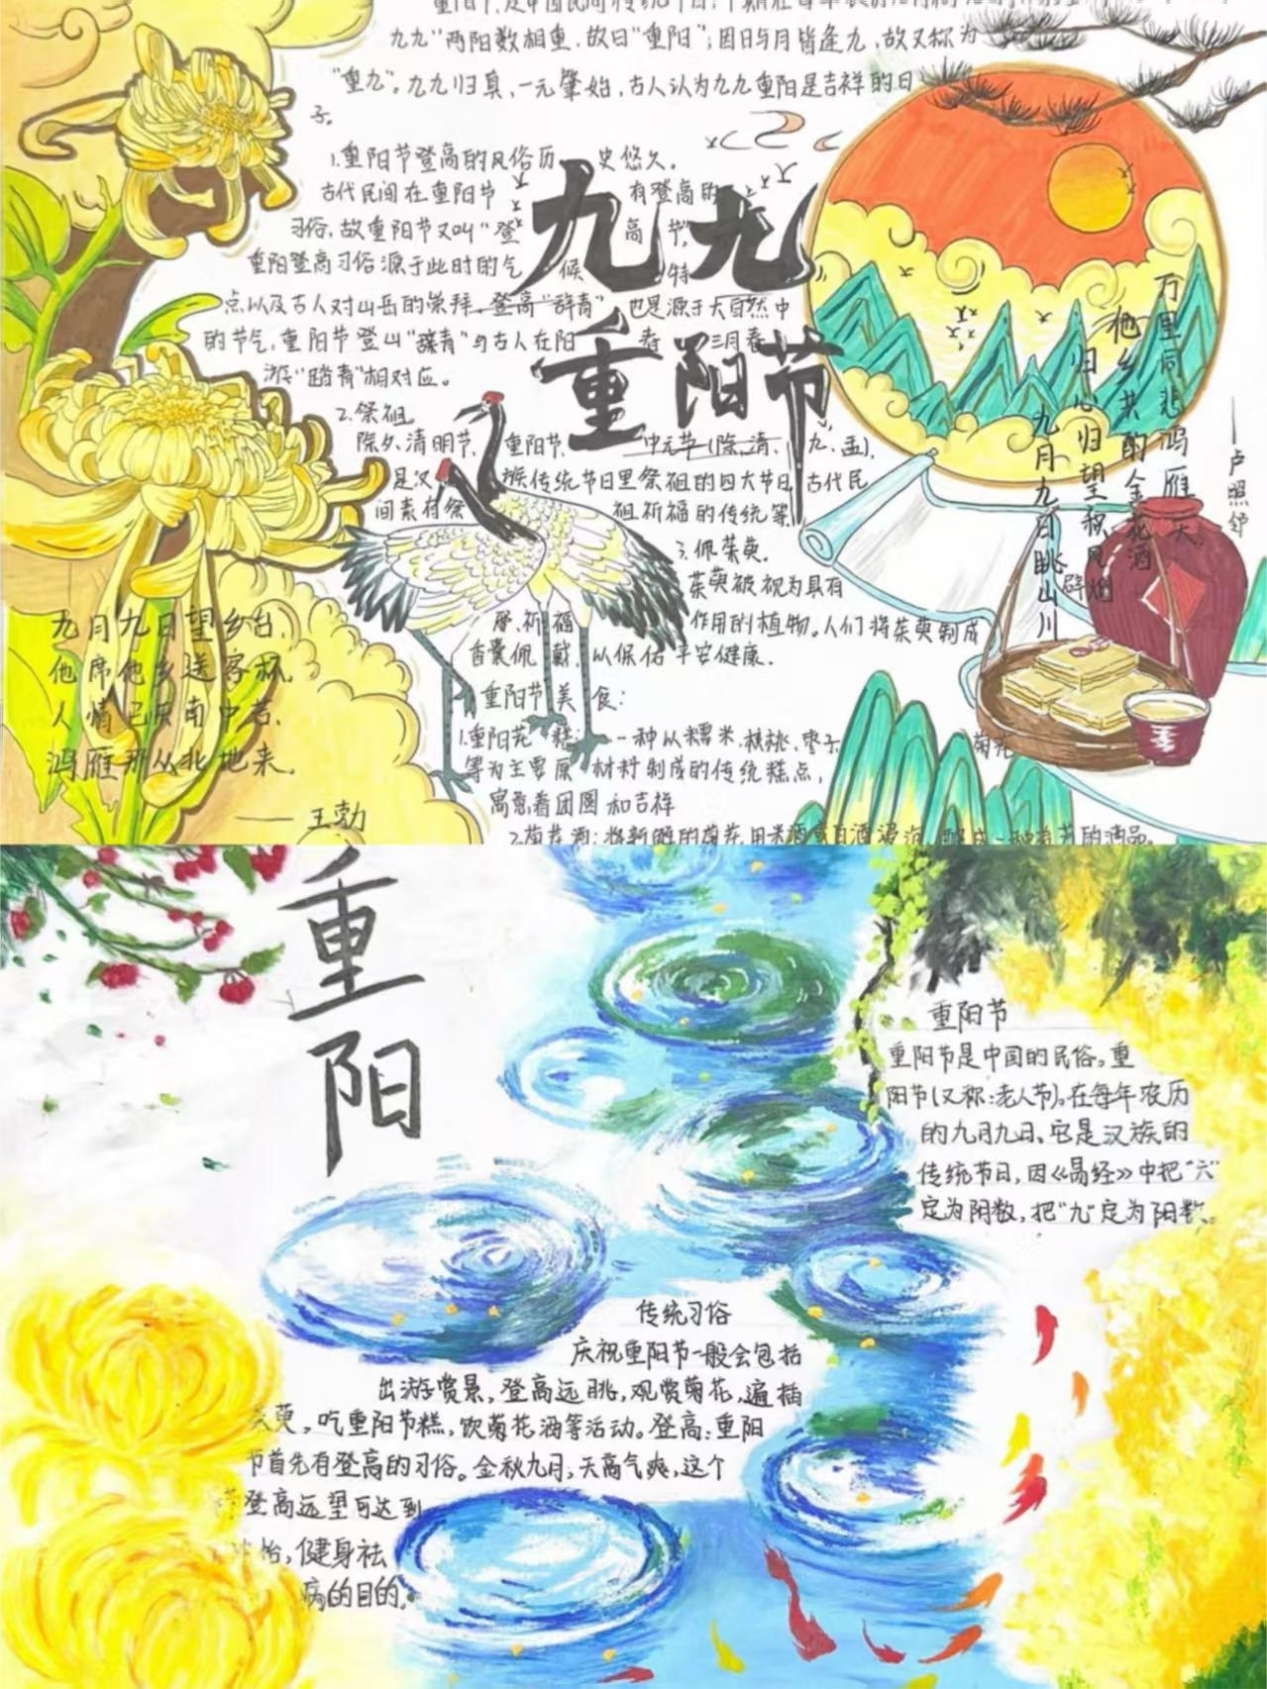 九九"两阳数相重,故曰"重阳";因日与月皆逢九,故又称为
"重九"。九九归真,一元肇始,古人认为九九重阳是吉祥的日
子。
1.重阳节登高的风俗历史悠久。
古代民间在重阳节有登高的
习俗,故重阳节又叫"登高节"。
重阳登高习俗源于此时的气候特
点以及古人对山岳的崇拜。登高"辞青"也是源于大自然中
的节气,重阳节登山"辞青"与古人在阳春三月春
游"踏青"相对应。
九九
重阳节
2.祭祖
除夕、清明节、重阳节、中元节(除、清、九、盂),
是汉族传统节日里祭祖的四大节日,古代民
间素有祭祖祈福的传统等
3.佩茱萸。
茱萸被视为具有
辟 祈福作用的植物。人们将茱萸制成
香囊佩戴,以保佑平安健康。
重阳节美食:
1.重阳花糕:一种以糯米、核桃、枣子
等为主要原材料制成的传统糕点,
寓意着团圆和吉祥
2.菊花酒:将新鲜的菊花用米酒或白酒浸泡
菊花
九月九日眺山川
归心归望积风烟
他乡共酌金花酒
万里同悲鸿雁天
——卢照邻
九月九日望乡台,
他席他乡送客杯。
人情已厌南中苦,
鸿雁那从北地来。
——王勃
重
阳
重阳节
重阳节是中国的民俗。重
阳节(又称:老人节)。在每年农历
的九月九日、它是汉族的
传统节日,因《易经》中把"六"
定为阴数,把"九"定为阳数。
传统习俗
庆祝重阳节一般会包括
出游赏景,登高远眺,观赏菊花,遍插
茱萸。吃重阳节糕,饮菊花酒等活动。登高:重阳
节首先有登高的习俗。金秋九月,天高气爽,这个
登高远望可达到
怡,健身祛
病的目的。